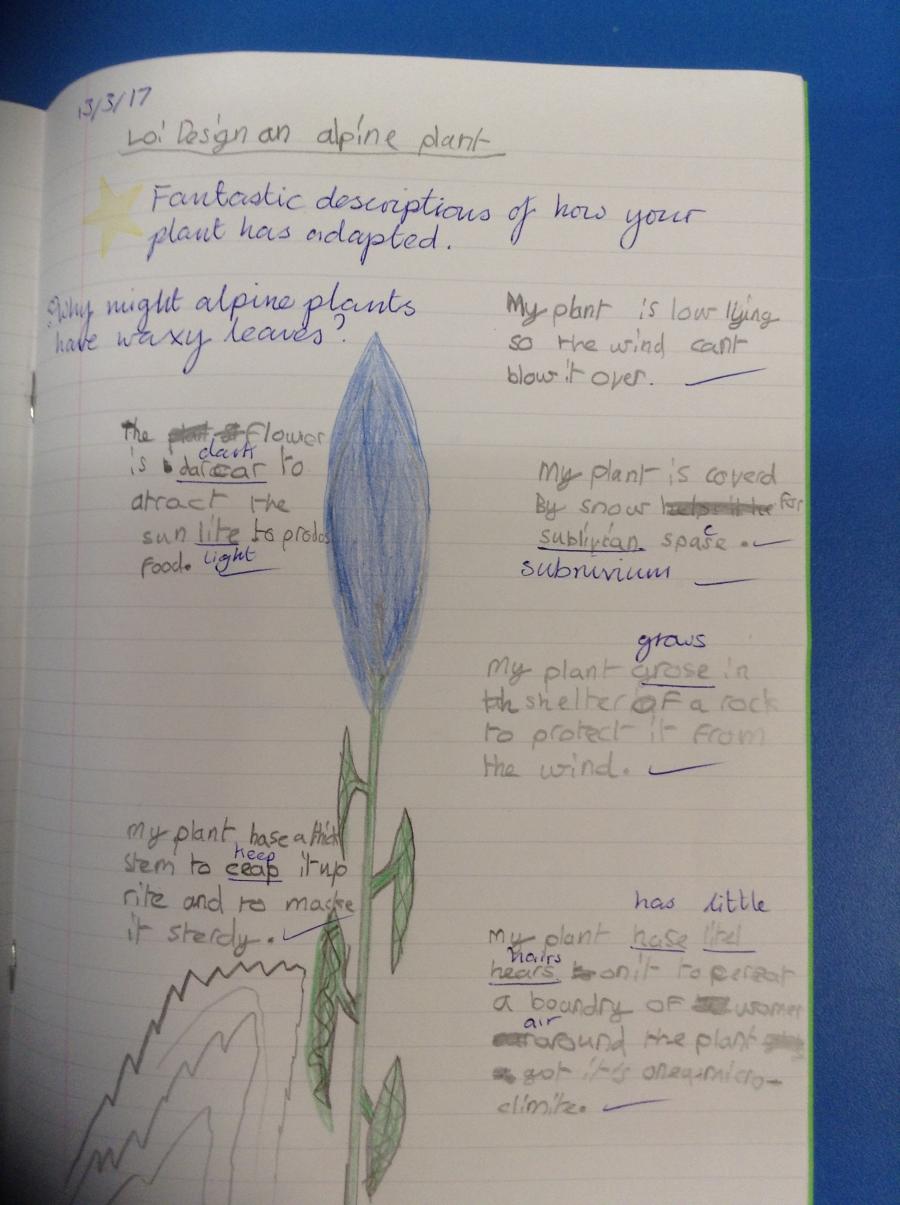 13/3/17
Lo: Design an alpine plant
Fantastic descriptions of how your
plant has adapted.
Why might alpine plants
have waxy leaves?
My plant is low llying
so the wind cant
blow it over.
The flower
dark
is darcar to
atract the
sun lite to produs
food. light
My plant is coverd
By snow for
sublivican space.
subnivium
grows
My plant grose in
shelter of a rock
to protect it from
the wind.
my plant hase a thick
stem to ceap it up
keep
rite and to macke
it sterdy.
has little
my plant hase litel
hairs
hears on it to
a boandry of womer
air
around the plant
got it's one micro-
climite.